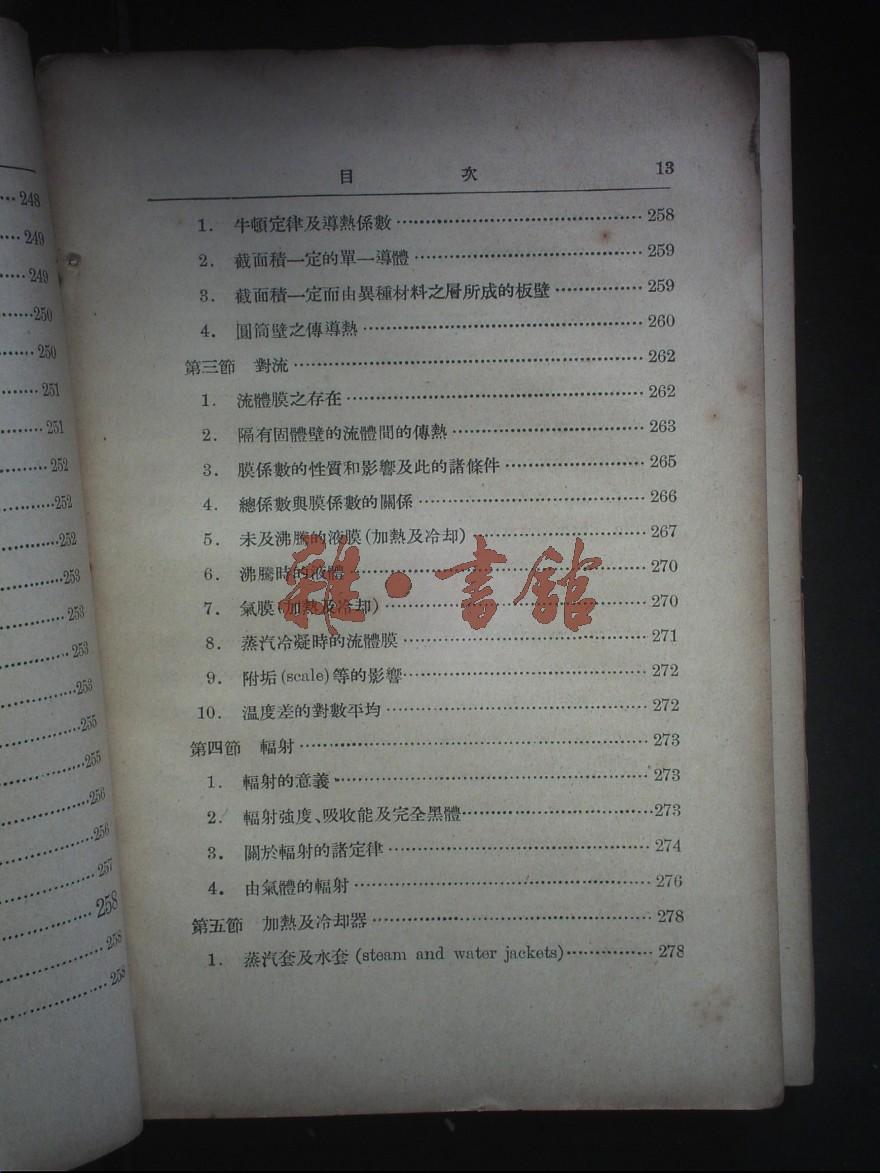 248
249
249
250
250
251
251
252
252
252
253
253
253
253
255
255
256
256
257
258
258
258
目 次 13
1. 牛頓定律及導熱係數 258
2. 截面積一定的單一導體 259
3. 截面積一定而由異種材料之層所成的板壁 259
4. 圓筒壁之傳導熱 260
第三節 對流 262
1. 流體膜之存在 262
2. 隔有固體壁的流體間的傳熱 263
3. 膜係數的性質和影響及此的諸條件 265
4. 總係數與膜係數的關係 266
5. 未及沸騰的液膜(加熱及冷却) 267
6. 沸騰時的液體 270
7. 氣膜(加熱及冷却) 270
8. 蒸汽冷凝時的流體膜 271
9. 附垢(scale)等的影響 272
10. 温度差的對數平均 272
第四節 輻射 273
1. 輻射的意義 273
2. 輻射強度、吸收能及完全黑體 273
3. 關於輻射的諸定律 274
4. 由氣體的輻射 276
第五節 加熱及冷却器 278
1. 蒸汽套及水套 (steam and water jackets) 278
雜·書館